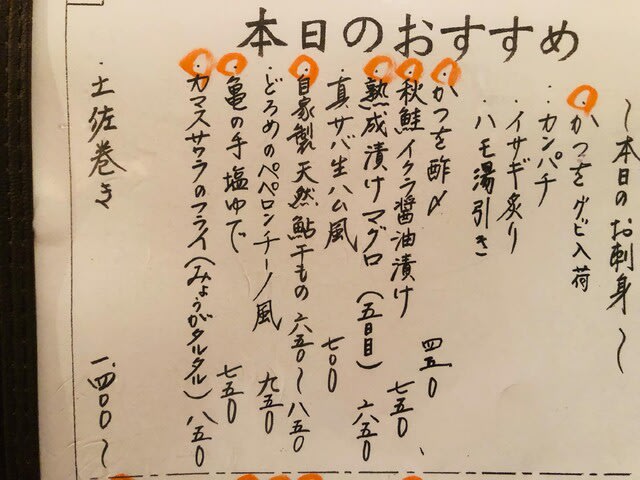 本日のおすすめ
〜本日のお刺身〜
・かつをタタビ入荷
・カンパチ
・イサギ炙り
・ハモ湯引き
・かつを酢〆 四五〇
・秋鮭イクラ醤油漬け 七五〇
・熟成漬けマグロ(五日目) 六五〇
・真サバ生ハム風 七〇〇
・自家製天然鮎干もの 六五〇〜八五〇
・どろめのペペロンチーノ風 九五〇
・亀の手塩ゆで 七五〇
・カマスサワラのフライ(みょうがタルタル) 八五〇
・土佐巻き 一、四〇〇〜